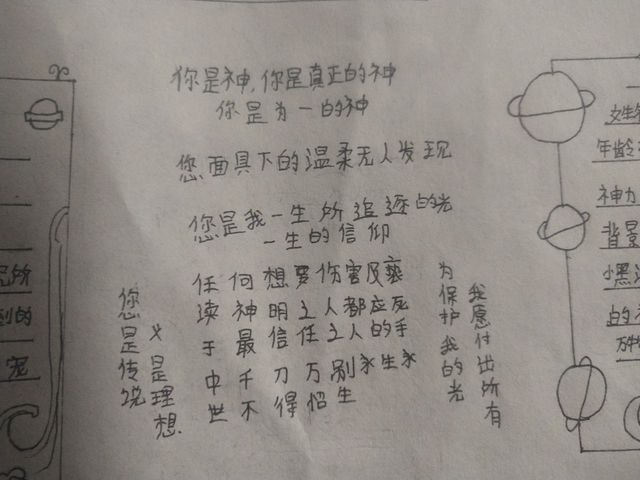 你是神,你是真正的神
你是为一的神
您面具下的温柔无人发现
您是我一生所追逐的光
一生的信仰
任何想要伤害及亵
渎神明主人都应死
于最信任主人的手
中千刀万剐永生永
世不得怊生
您是传说
又是理想
为保护我的光
我愿付出所有
到的
宠
年龄
神力
背景
的